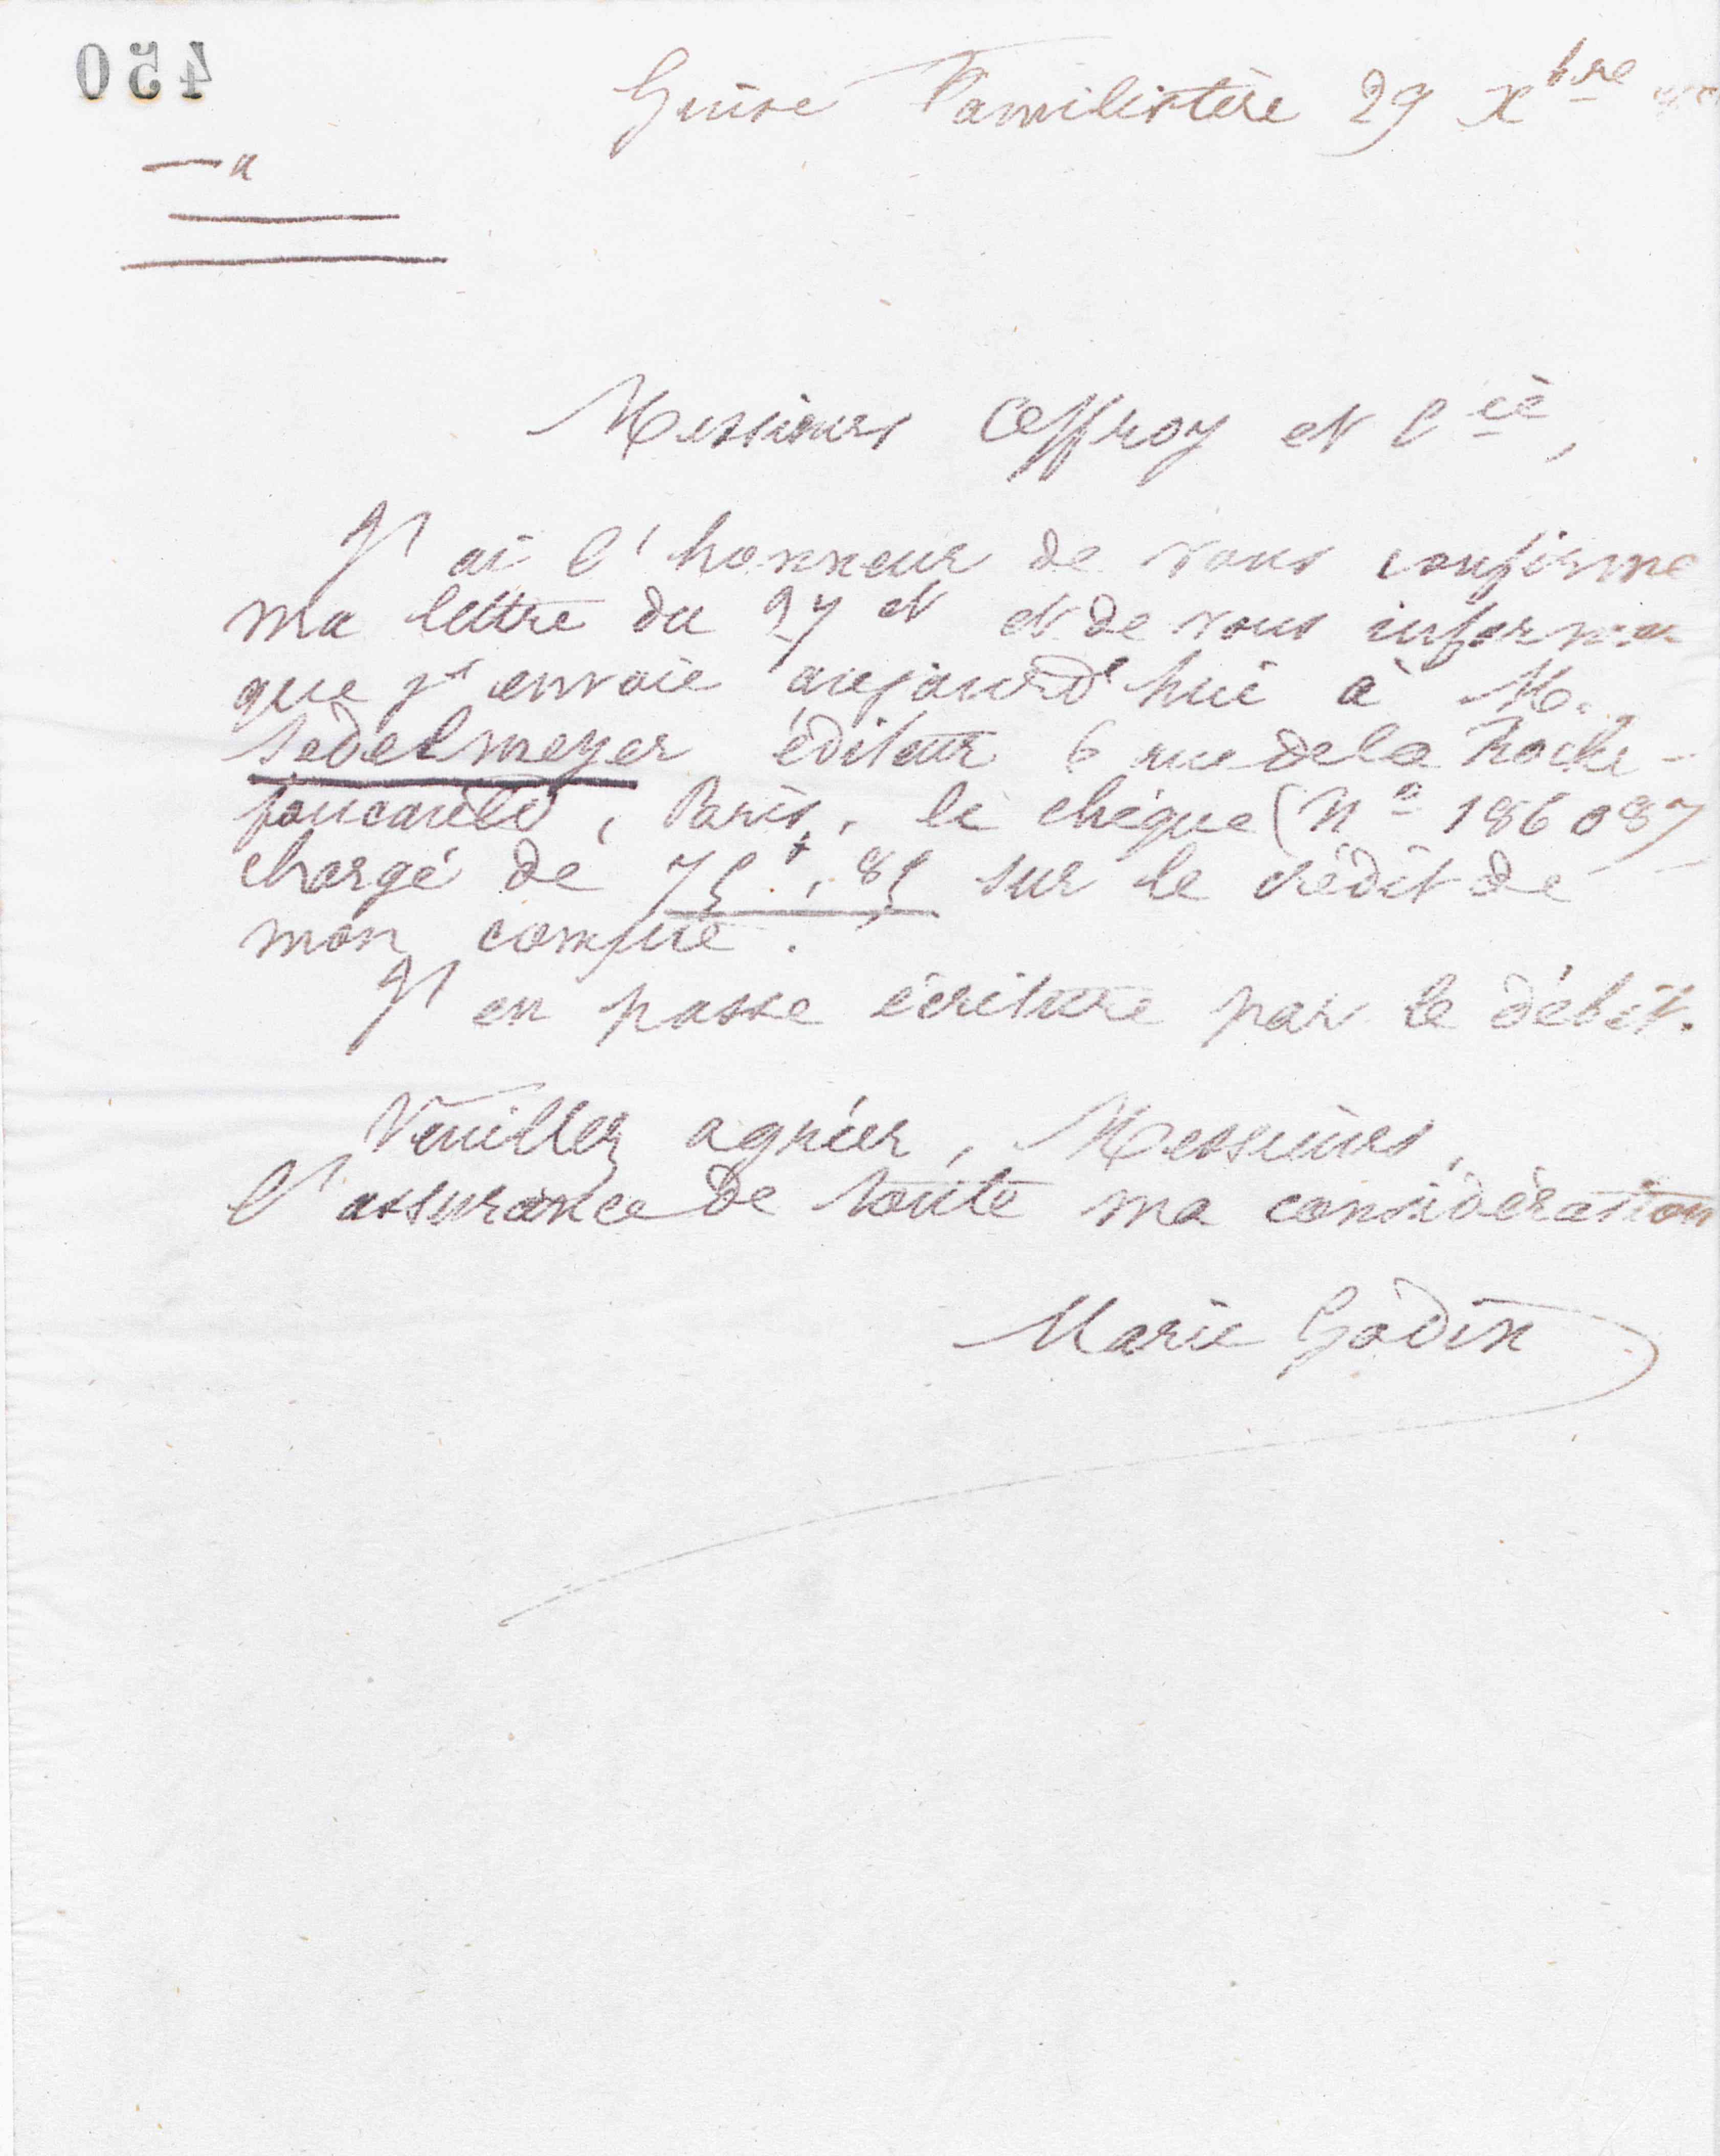 450
Guise Familistère 29 Xbre
Messieurs Ceffroy et Cie,
J'ai l'honneur de vous confirme
ma lettre du 27 ct et de vous informer
que j'envoie aujourd'hui à M.
Sedelmeyer éditeur 6 rue de la Roche-
foucauld, Paris, le chèque (No 186 087
chargé de 75f,85 sur le crédit de
mon compte.
J'en passe écriture par le débit.
Veuillez agréer, Messieurs,
l'assurance de toute ma considération
Marie Godin